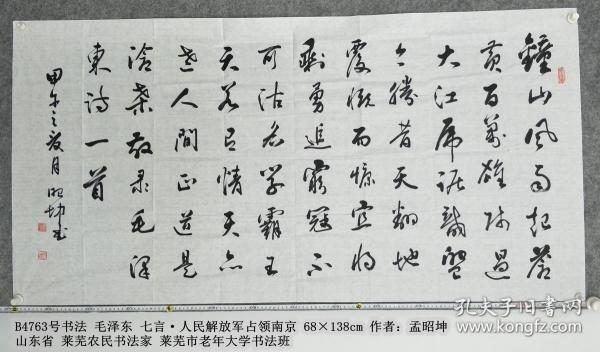 鐘山风雨起蒼
黄百萬雄师過
大江虎踞龍盤
今勝昔天翻地
覆慨而慷宜将
剩勇追窮冦不
可沽名学霸王
天若有情天亦
老人間正道是
滄桑敬录毛泽
東诗一首
甲午之夏月昭坤书
B4763号书法 毛泽东 七言·人民解放军占领南京 68×138cm 作者: 孟昭坤
山东省 莱芜农民书法家 莱芜市老年大学书法班